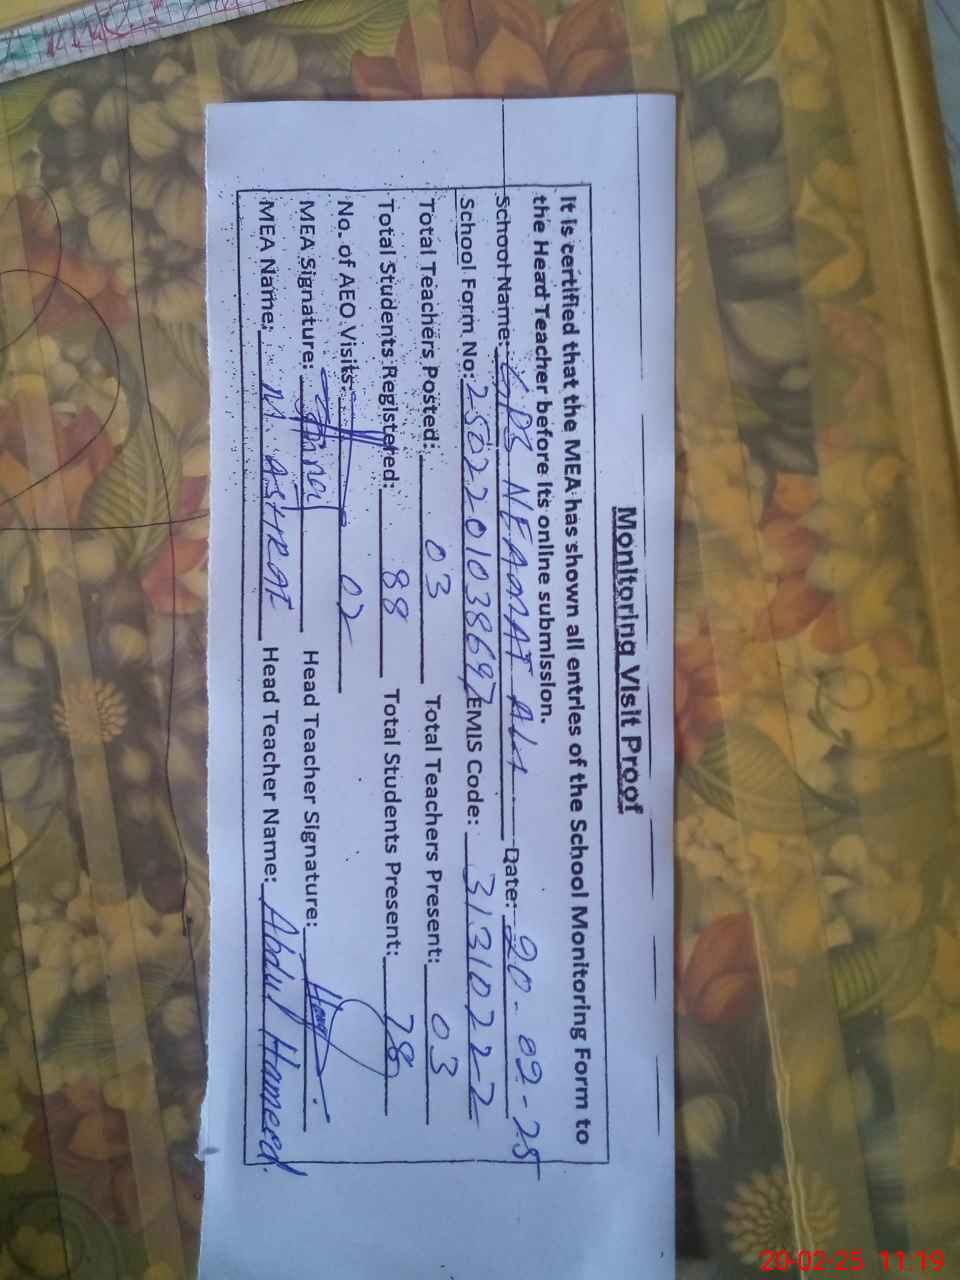 Monitoring Visit Proof
It is certified that the MEA has shown all entries of the School Monitoring Form to
the Head Teacher before its online submission.
School Name: GPS NEAMAT ALI Date: 20-02-25
School Form No: 2502201038697 EMIS Code: 31310222
Total Teachers Posted: 03 Total Teachers Present: 03
Total Students Registered: 88 Total Students Present: 78
No. of AEO Visits: 02
MEA Signature: Head Teacher Signature:
MEA Name: M. ASHRAF Head Teacher Name: Abdul Hameed
20-02-25 11:19